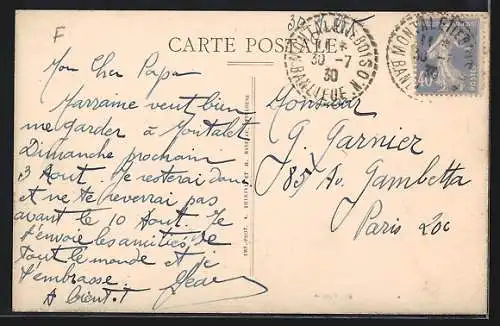 F
30
CARTE POSTALE
MONTALET LE BOIS
30 -7
30
BANLIEUE N.
MONTALET LE
BANLIEUE
Mon Cher Papa
Marraine veut bien
me garder à Montalet
Dimanche prochain
3 Aout. Je resterai donc
et ne te reverrai pas
avant le 10 Aout. Je
t'envoie les amitiés de
tout le monde et je
t'embrasse. Jean
A bientôt
Monsieur
G. Garnier
85 Av. Gambetta
Paris 20e